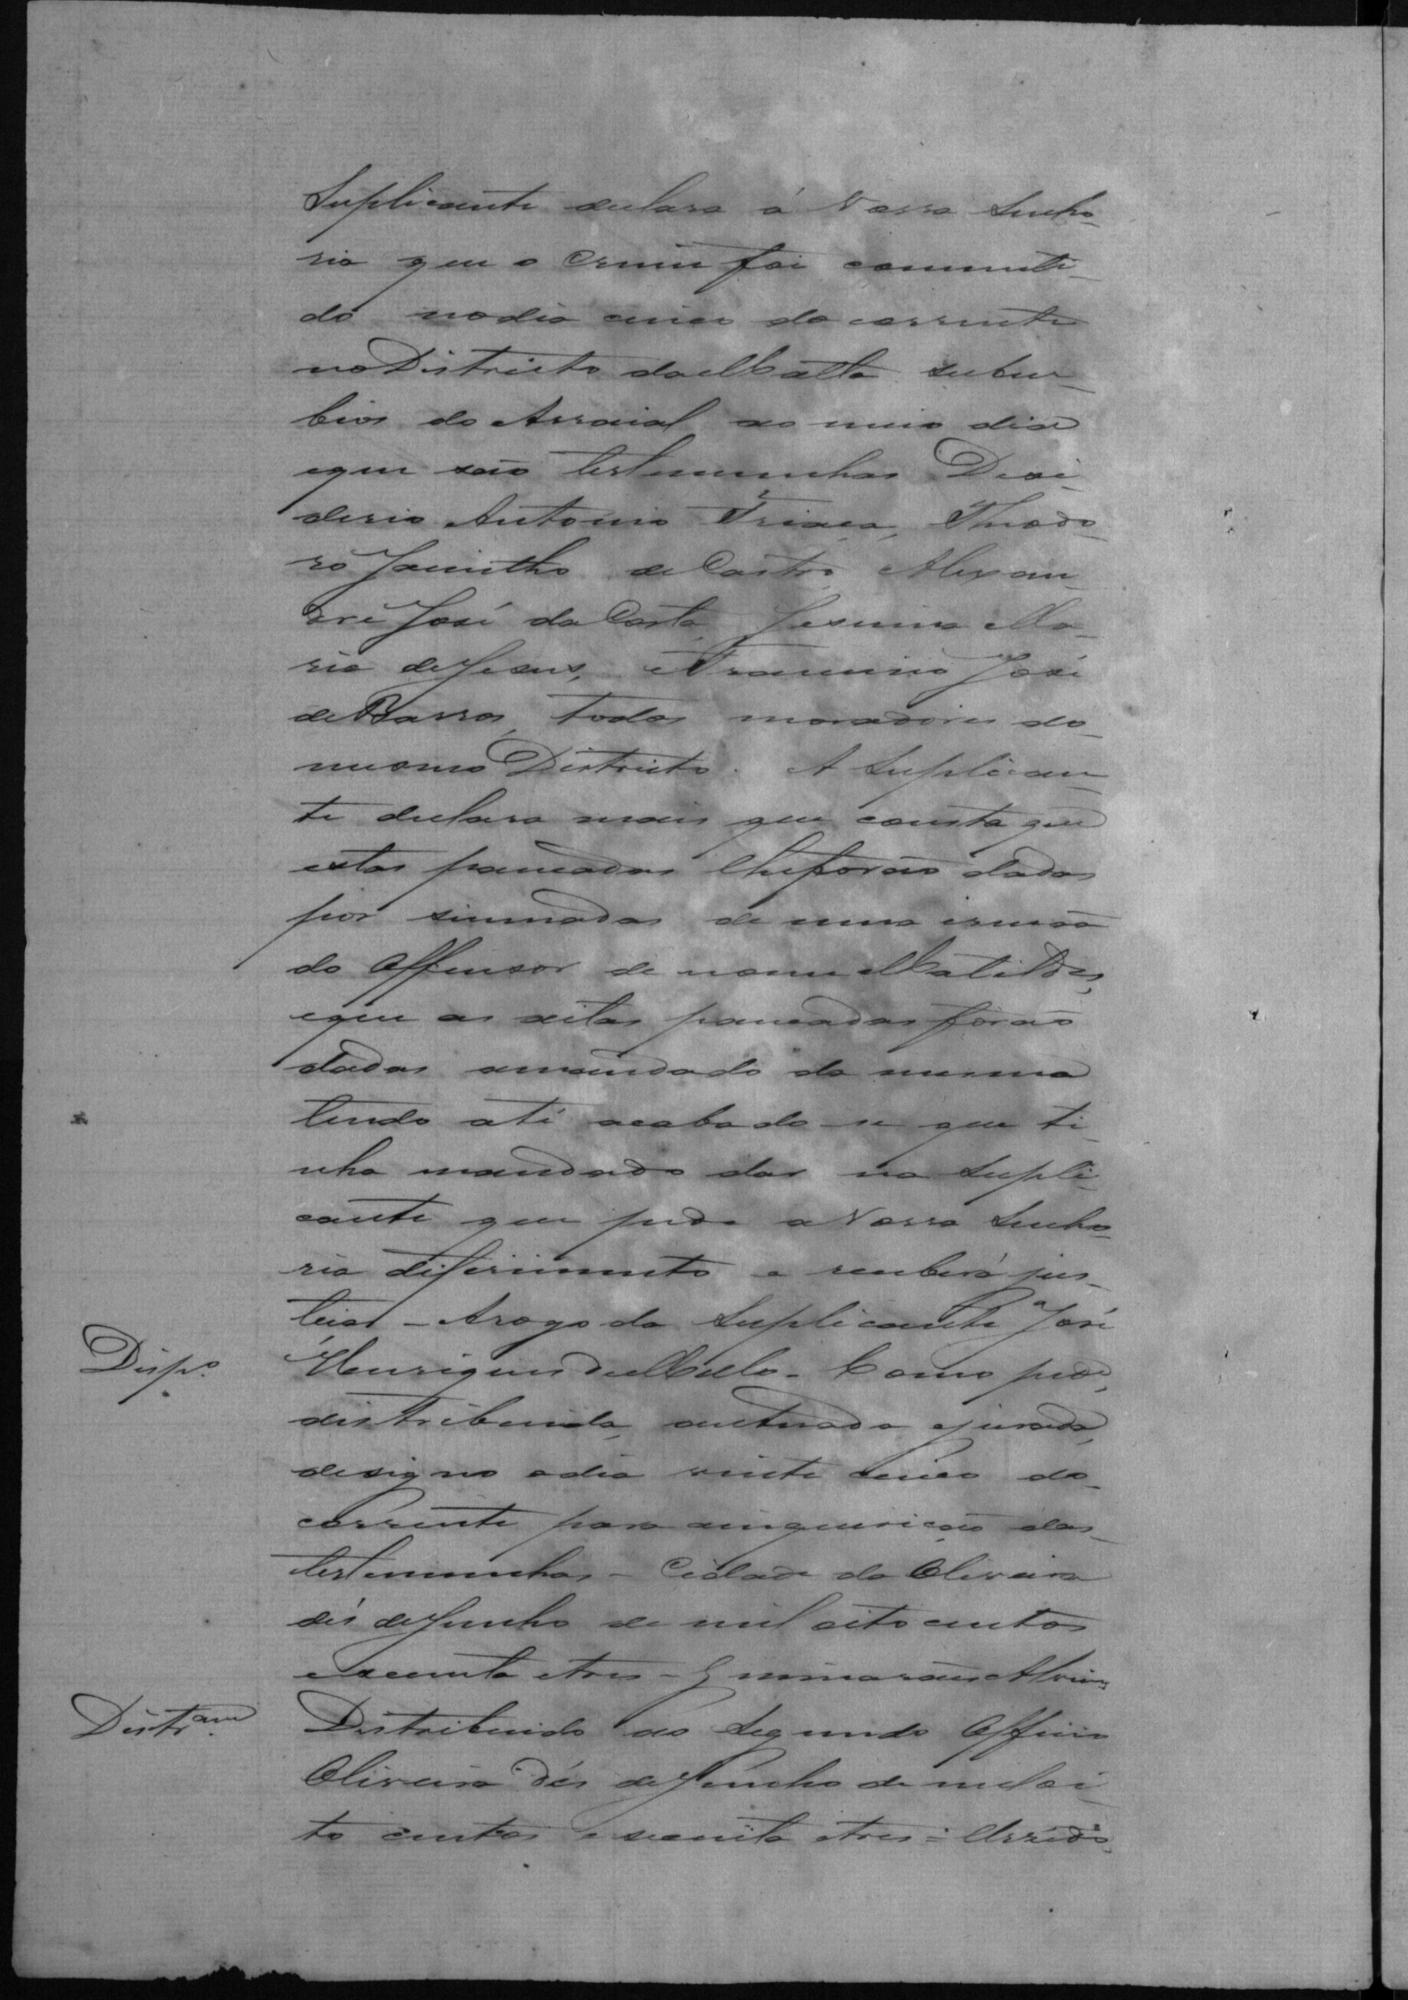 Suplicante declara á Vossa Senho-
ria que o Crime foi commeti-
do nodia cinco do corrente
no Districto da Matta subur-
bios do Arraial ao meio dia
eque são testemunhas Desi-
derio Antonio Theodo-
ro Jacintho de Castro Alexan-
dre José da Costa, Jesuina Ma-
ria de Jesus, José
de Barros, todos moradores do
mesmo Districto. A Suplican-
te declara mais que consta que
estas pancadas lheforão dadas
por de uma irmãa
do Offensor de nome Matildes,
eque as ditas pancadas forão
dadas amandado da mesma
tendo até acabado se que ti-
nha mandado dar na Supli-
cante que pede a Vossa Senho-
ria diferimento e receberá jus-
tiça - Arogo da Suplicante José
Henriques de Mello - Como pede,
Desp.º
distribuida, autuada ejurada,
designo odia vinte cinco do
corrente para ainquirição das
testemunhas - Cidade da Oliveira
dés deJunho de mil oito centos
esecenta etres - Guimarães
Distr.am
Distribuido ao Segundo Officio
Oliveira dés deJunho de miloi-
to centos e secenta etres =